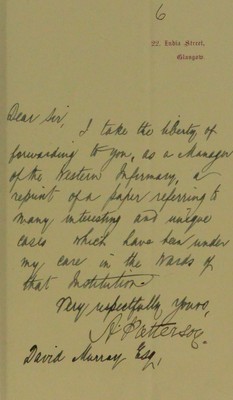 6
22, India Street,
Glasgow
Dear Sir,
I take the liberty of
forwarding to you, as a Manager
of the Western Infirmary, a
reprint of a paper referring to
many interesting and unique
cases which have been under
my care in the wards of
that Institution.
Very respectfully yours,
A. Patterson.
David Murray Esq,